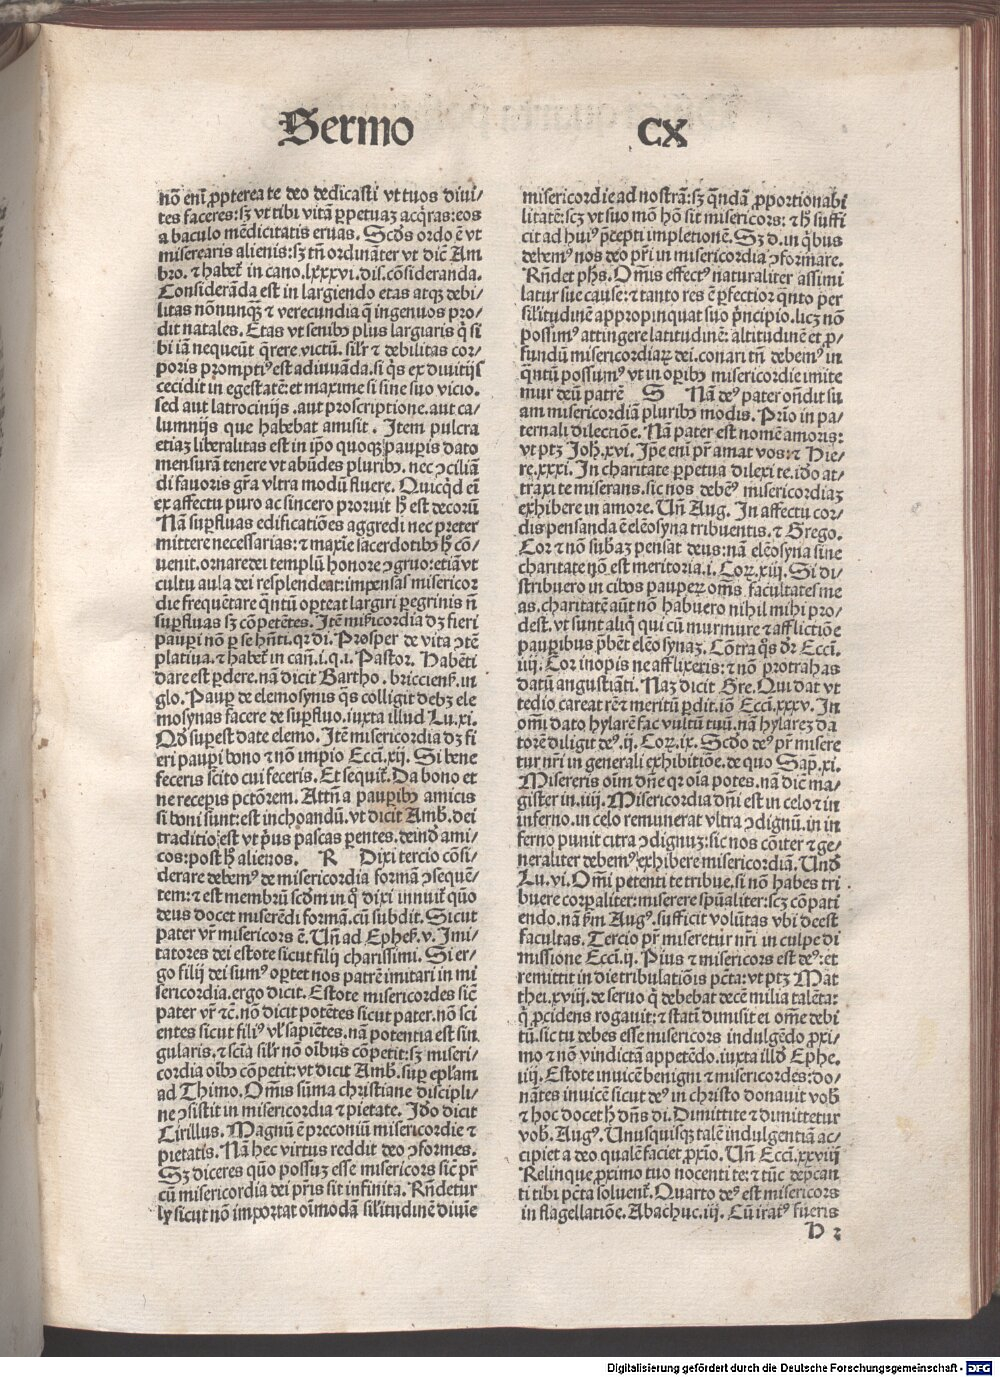 Sermo CX
nõ enĩ ꝓpterea te deo dedicasti vt tuos diui/
tes faceres:sꝫ vt tibi vitã ꝑpetuaꝫ acq̃ras:eos
a baculo mẽdicitatis eruas. Scd̃s ordo ẽ vt
miserearis alienis:sꝫ tñ ordinãter vt dic̃ Am
bro. ⁊ habet̃ in cano.lxxxvi.dis.cõsideranda.
Considerãda est in largiendo etas atqꝫ debi/
litas nõnunqꝫ̃ ⁊ verecundia q̃ ingenuos pro/
dit natales. Etas vt senibꝰ plus largiaris q̃ si
bi iã nequeũt q̃rere victũ. sil̃r ⁊ debilitas cor/
poris promptiꝰ est adiuuãda.si q̃s ex diuitijs
cecidit in egestatẽ:et maxime si sine suo vicio.
sed aut latrocinijs .aut proscriptione.aut ca/
lumnijs que habebat amisit . Item pulcra
etiaꝫ liberalitas est in ip̃o quoqꝫ pauꝑis dato
mensurã tenere vt abũdes pluribꝰ. nec ↄciliã
di fauoris gr̃a vltra modũ fluere. Quicq̃d eñi
ex affectu puro ac sincero proruit h̃ est decorũ
Nã suꝑfluas edificatiões aggredi nec preter
mittere necessarias:⁊ maxĩe sacerdotibꝰ h̃ cõ/
uenit.ornare dei templũ honore ↄgruo:etiã vt
cultu aula dei resplendeat:impensas misericor
die frequẽtare q̃ntũ oꝑteat largiri ꝑegrinis ñ
suꝑfluas sꝫ cõpetẽtes. Itẽ mĩsericordia dꝫ fieri
pauꝑi nõ ꝑ se hñti.qꝛ di. Prosper de vita ↄtẽ
platiua.⁊ habet̃ in cañ.i.q.i. Pastor. Habẽti
dare est ꝑdere.nã dicit Bartho. briccienẽ.in
glo. Pauꝑ de elemosynis q̃s colligit debꝫ ele
mosynas facere de suꝑfluo.iuxta illud Lu.xi.
Qd̃ suꝑest date elemo. Itẽ misericordia dꝫ fi
eri pauꝑi bono ⁊ nõ impio Ecci̇.xij. Si bene
feceris scito cui feceris. Et sequit̃. Da bono et
ne receperis pctõrem. Attñ a pauꝑibꝰ amicis
si boni sunt:est inchoandũ.vt dicit Amb̃.dei
traditio est vt p̃us pascas ꝑentes.deinde ami/
cos:post h̃ alienos. R Dixi tercio cõsi/
derare debemꝰ de misericordia formã ↄsequẽ/
tem:⁊ est membrũ scd̃m in q̃ dixi innuit̃ quõ
deus docet miserẽdi formã.cũ subdit. Sicut
pater vr̃ misericors ẽ. Uñ ad Epheẽ.v. Imi/
tatores dei estote sicut filij charissimi. Si er/
go filij dei sumꝰ oꝑtet nos patrẽ imitari in mi
sericordia.ergo dicit. Estote misericordes sic̃
pater vr̃ ⁊c̃.nõ dicit potẽtes sicut pater.nõ sci
entes sicut filiꝰ vl̃ sapiẽtes.nã potentia est sin
gularis.⁊ scĩa sil̃r nõ oĩbus cõpetit:sꝫ miseri/
cordia oĩbꝰ cõpetit:vt dicit Amb̃.suꝑ ep̃lam
ad Thimo. Om̃is sũma christiane discipli/
ne ↄsistit in misericordia ⁊ pietate. Id̃o dicit
Cirillus. Magnũ ẽ preconiũ misericordie ⁊
pietatis. Nã hec virtus reddit deo ↄformes.
Sꝫ diceres quõ possuꝫ esse misericors sic̃ pr̃
cũ misericordia dei pr̃is sit infinita. Rñdetur
lꝫ sicut nõ importat oĩmodã sil̃itudinẽ diuie
misericordie ad nostrã:sꝫ q̃ndã ꝓportionabi
litatẽ:scꝫ vt suo mõ hõ sit misericors: ⁊ h̃ suffi
cit ad huiꝰ p̃cepti impletionẽ. Sꝫ d.in q̃bus
debemꝰ nos deo pr̃i in misericordia ↄformare.
Rñdet ph̃s. Om̃is effectꝰ naturaliter assimi
latur sue cause:⁊ tanto res ẽ ꝑfectior q̃nto per
sil̃itudinẽ appropinquat suo p̃ncipio.licꝫ nõ
possimꝰ attingere latitudinẽ: altitudinẽ et ꝓ/
fundũ misericordiaꝝ dei.conari tñ debemꝰ in
q̃ntũ possumꝰ vt in oꝑibꝰ misericordie imite
mur deũ patrẽ S Nã deꝰ pater oñdit su
am misericordiã pluribꝰ modis. Prĩo in pa/
ternali dilectiõe. Nã pater est nomẽ amoris:
vt ptꝫ Joh̃.xvi. Ip̃e enĩ pr̃ amat vos:⁊ Hie/
re.xxxi. In charitate ꝑpetua dilexi te.id̃o at/
traxi te miserans.sic nos debẽꝰ misericordiaꝫ
exhibere in amore. Uñ Aug. In affectu cor/
dis pensanda ẽ elẽosyna tribuentis.⁊ Grego.
Cor ⁊ nõ subaꝫ pensat deus:nã elẽosyna sine
charitate nõ est meritoria.i. Coꝝ.xiii. Si di/
stribuero in cibos pauperꝝ om̃s facultates me
as.charitatẽ aũt nõ habuero nihil mihi pro/
dest. vt sunt aliq̃ qui cũ murmure ⁊ afflictiõe
pauꝑibus p̃bẽt elẽosynaꝫ. Cõtra q̃s dr̃ Ecci̇.
iiij. Cor inopis ne afflixeris:⁊ nõ protrahas
datũ angustiãti. Naꝫ dicit Gre. Qui dat vt
tedio careat rẽ ⁊ meritũ ꝑdit.iõ Ecci̇.xxxv. In
om̃i dato hylarẽ fac vultũ tuũ.nã hylareꝫ da
torẽ diligit deꝰ.ij. Coꝝ.ix. Scd̃o deꝰ pr̃ misere
tur nr̃i in generali exhibitiõe.de quo Sap̃.xi.
Misereris oĩm dñe qꝛ oĩa potes.nã dic̃ ma/
gister in.iiij. Misericordia dñi est in celo ⁊ in
inferno.in celo remunerat vltra ↄdignũ.in in
ferno punit citra ↄdignuꝫ:sic nos cõiter ⁊ ge/
neraliter debemꝰ exhibere misericordiã. Und̃
Lu.vi. Om̃i petenti te tribue.si nõ habes tri
buere corꝑaliter:miserere sp̃ualiter:scꝫ cõpati
endo.nã km̃ Augꝰ.sufficit volũtas vbi deest
facultas. Tercio pr̃ miseretur nr̃i in culpe di
missione Ecci̇.ij. Pius ⁊ misericors est deꝰ:et
remittit in die tribulatiõis pctã:vt ptꝫ Mat
thei.xviij.de seruo q̃ debebat decẽ milia talẽta:
q̃ ꝓcidens rogauit:⁊ statĩ dimisit ei om̃e debi
tũ.sic tu debes esse misericors indulgẽdo ꝓxi/
mo ⁊ nõ vindictã appetẽdo.iuxta illd̃ Ephe.
iiij. Estote inuicẽ benigni ⁊ misericordes:do/
nãtes inuicẽ sicut deꝰ in christo donauit vob̃
⁊ hoc docet h̃ dñs di. Dimittite ⁊ dimittetur
vob̃. Augꝰ. Unusquisqꝫ talẽ indulgentiã ac/
cipiet a deo.qualẽ faciet ꝓxĩo. Uñ Ecci̇.xxviij
Relinque ꝓximo tuo nocenti te:⁊ tũc dep̃can
ti tibi pctã soluent̃. Quarto deꝰ est misericors
in flagellatiõe. Abachuc.iij. Cũ iratꝰ fueris
H 2
Digitalisierung gefördert durch die Deutsche Forschungsgemeinschaft - DFG